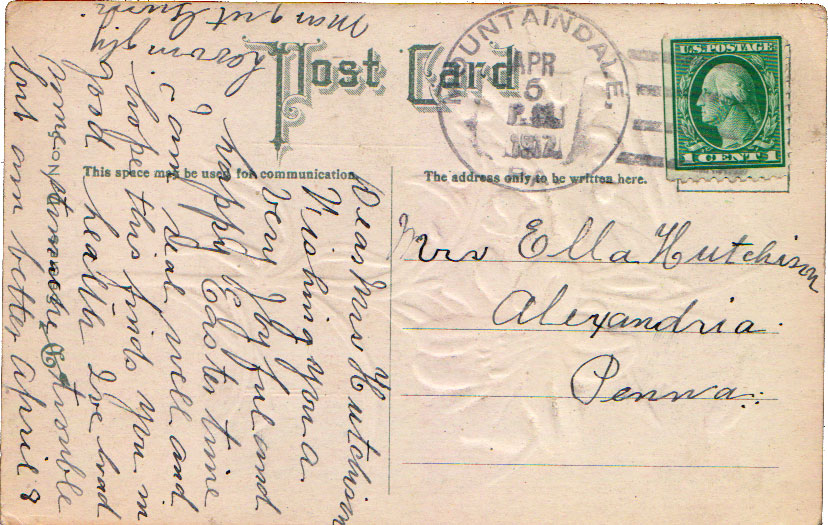 Post Card
MOUNTAINDALE,
APR
5
U.S. POSTAGE
1 CENT 1
This space may be used for communication
The address only to be written here.
Mrs Ella Hutchison
Alexandria
Penna.
Dear Mrs Hutchison
Wishing you a
very joyful and
happy Easter time
I am well and
hope this finds you in
good health I've had
some stomache trouble
but am better April 8